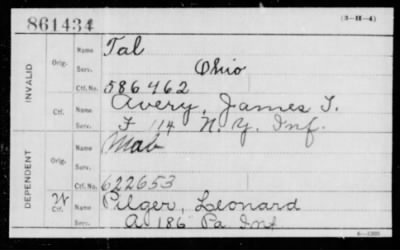 861434
(3-H-4)
INVALID
Orig.
Name Tal
Serv. Ohio
Ctf. No. 586462
Ctf.
Name Avery, James T.
Serv. F 114 N.Y. Inf.
DEPENDENT
Orig.
Name Mab
Serv.
Ctf. No. 622653
W Ctf.
Name Pilger, Leonard
Serv. A 186 Pa Inf